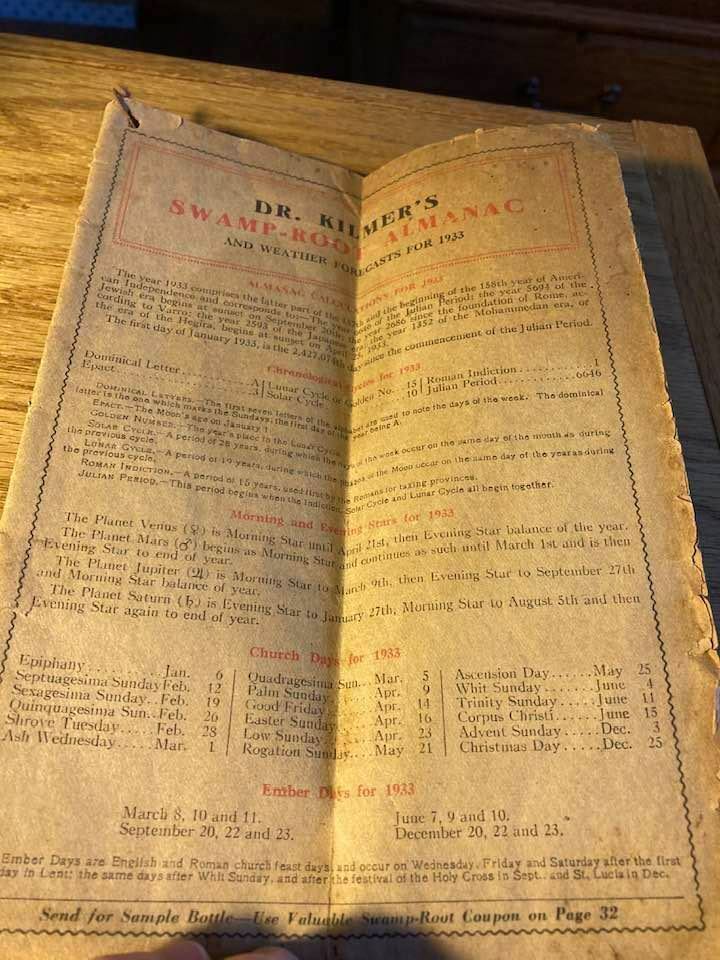 DR. KILMER'S
SWAMP-ROOT ALMANAC
AND WEATHER FORECASTS FOR 1933
ALMANAC CALCULATIONS FOR 1933
The year 1933 comprises the latter part of the 157th and the beginning of the 158th year of Ameri-
can Independence and corresponds to:- The year 6646 of the Julian Period; the year 5694 of the
Jewish era begins at sunset on September 20th; the year 2686 since the foundation of Rome, ac-
cording to Varro; the year 2593 of the Japanese era; the year 1352 of the Mohammedan era, or
the era of the Hegira, begins at sunset on April 25, 1933.
The first day of January 1933, is the 2,427,074th day since the commencement of the Julian Period.
Chronological Cycles for 1933
Dominical Letter A | Lunar Cycle or Golden No. 15 | Roman Indiction 1
Epact 3 | Solar Cycle 10 | Julian Period 6646
DOMINICAL LETTERS.—The first seven letters of the alphabet are used to note the days of the week. The dominical
letter is the one which marks the Sundays; the first day of the year being A.
EPACT.—The Moon's age on January 1.
GOLDEN NUMBER.—The year's place in the Lunar Cycle.
SOLAR CYCLE.—A period of 28 years, during which the days of the week occur on the same day of the month as during
the previous cycle.
LUNAR CYCLE.—A period of 19 years, during which the phases of the Moon occur on the same day of the year as during
the previous cycle.
ROMAN INDICTION.—A period of 15 years, used first by the Romans for taxing provinces.
JULIAN PERIOD.—This period begins when the Indiction, Solar Cycle and Lunar Cycle all begin together.
Morning and Evening Stars for 1933
The Planet Venus (♀) is Morning Star until April 21st, then Evening Star balance of the year.
The Planet Mars (♂) begins as Morning Star and continues as such until March 1st and is then
Evening Star to end of year.
The Planet Jupiter (♃) is Morning Star to March 9th, then Evening Star to September 27th
and Morning Star balance of year.
The Planet Saturn (♄) is Evening Star to January 27th, Morning Star to August 5th and then
Evening Star again to end of year.
Church Days for 1933
Epiphany Jan. 6 | Quadragesima Sun. Mar. 5 | Ascension Day May 25
Septuagesima Sunday Feb. 12 | Palm Sunday Apr. 9 | Whit Sunday June 4
Sexagesima Sunday Feb. 19 | Good Friday Apr. 14 | Trinity Sunday June 11
Quinquagesima Sun. Feb. 26 | Easter Sunday Apr. 16 | Corpus Christi June 15
Shrove Tuesday Feb. 28 | Low Sunday Apr. 23 | Advent Sunday Dec. 3
Ash Wednesday Mar. 1 | Rogation Sunday May 21 | Christmas Day Dec. 25
Ember Days for 1933
March 8, 10 and 11. June 7, 9 and 10.
September 20, 22 and 23. December 20, 22 and 23.
Ember Days are English and Roman church feast days, and occur on Wednesday, Friday and Saturday after the first
day in Lent; the same days after Whit Sunday, and after the festival of the Holy Cross in Sept. and St. Lucia in Dec.
Send for Sample Bottle—Use Valuable Swamp-Root Coupon on Page 32